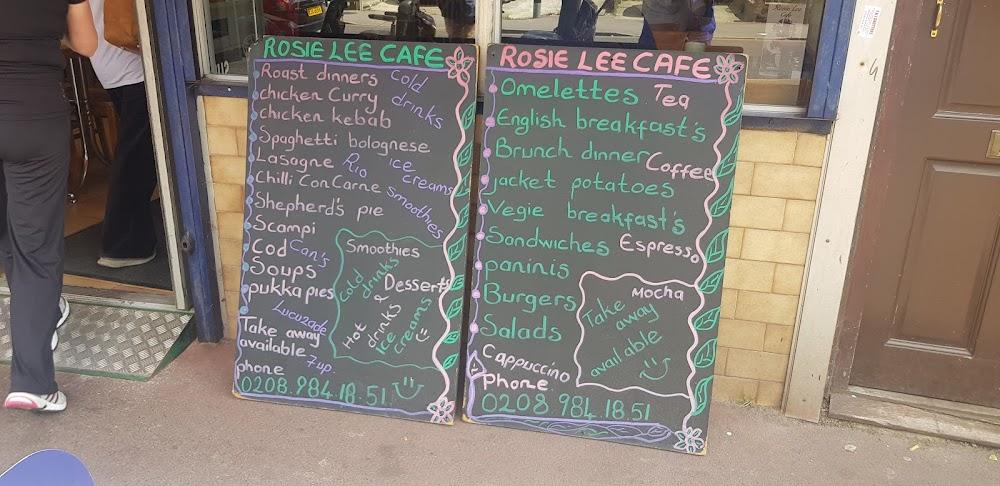 ROSIE LEE CAFE
Roast dinners
Cold drinks
chicken Curry
chicken kebab
Spaghetti bolognese
Lasagne
Rio
ice creams
Chilli Con Carne
Smoothies
Shepherd's pie
Scampi
Cod
Can's
Soups
pukka pies
Lucuzade
Smoothies
Cold drinks
&
Desserts
Hot drinks
ice creams
Take away
available
7up.
phone
0208.984.18.51
ROSIE LEE CAFE
Omelettes
Tea
English breakfast's
Brunch dinner
Coffee
jacket potatoes
Vegie breakfast's
Sandwiches
Espresso
paninis
Burgers
Mocha
Salads
Take away available
Cappuccino
phone
0208 984.18.51
Rosie Lee
Cafe